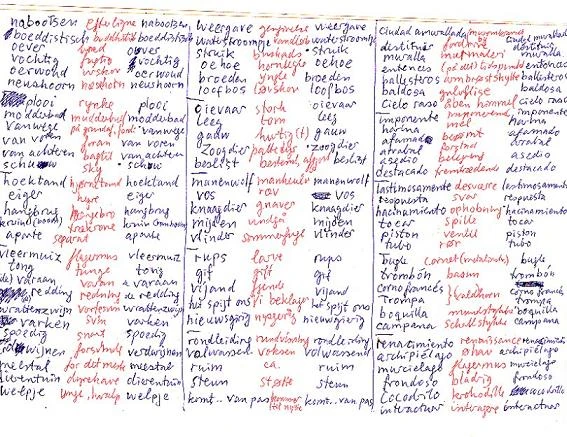 nabootsen efterligne nabootsen
boeddistisch buddhistisk boeddistisch
oever bred oever
vochtig fugtig vochtig
oerwoud urskov oerwoud
neushoorn næsehorn neushoorn
plooi rynke plooi
modderbad mudderbad modderbad
vanwege på grund af vanwege
van voren foran van voren
van achteren bagtil van achteren
hoektand hjørnetand hoektand
hangbrug hængebro hangbrug
aparte separat aparte
vleermuis flagermus vleermuis
tong tunge tong
varaan varan varaan
redding redning de redding
varken svin varken
spoedig snart spoedig
verdwijnen forsvinde verdwijnen
meestal for det meste meestal
dierentuin dyrehave dierentuin
welpje unge, hvalp welpje
weergave gengivelse weergave
waterstroompje
struik buskads struik
oehoe hornugle oehoe
broeden yngle broeden
loofbos løvskov loofbos
oievaar stork oievaar
lees tom lees
gauw hurtig(t) gauw
zoogdier pattedyr zoogdier
beslist bestemt, afgjort beslist
manenwolf mankeulv manenwolf
vos ræv vos
knaagdier gnaver knaagdier
mijden undgå mijden
vlinder sommerfugl vlinder
rups larve rups
gif gift gif
vijand fjende vijand
het spijt ons vi beklager het spijt ons
nieuwsgierig nysgerrig nieuwsgierig
rondleiding rundvisning rondleiding
volwassen voksen volwassen
ruim ca. ruim
steun støtte steun
komt.. van pas kommer til nytte komt.. van pas
ciudad amurallada ciudad murallada
destituir fordrive destituir
muralla mur muralla
entonces (på det) tidspunkt entonces
ballesteros armbrøstskytte ballesteros
baldosa gulvflise baldosa
cielo raso åben himmel cielo raso
imponente imponerende imponente
harina mel harina
afamado berømt afamado
arrabal forstad arrabal
asedio belejring asedio
destacado fremtrædende destacado
lastimosamente desværre lastimosamente
respuesta svar respuesta
hacinamiento ophobning hacinamiento
tocar spille tocar
piston ventil piston
tubo rør tubo
bugle cornet (metalmunds) bugle
trombón basun trombón
corno francés corno francés
trompa valdhorn trompa
boquilla mundstykke boquilla
campana schallstykke campana
renacimiento renaissance renacimiento
archipiélago øhav archipiélago
murciélago flagermus murciélago
frondoso bladrig frondoso
cocodrilo krokodille cocodrilo
interactuar interagere interactuar